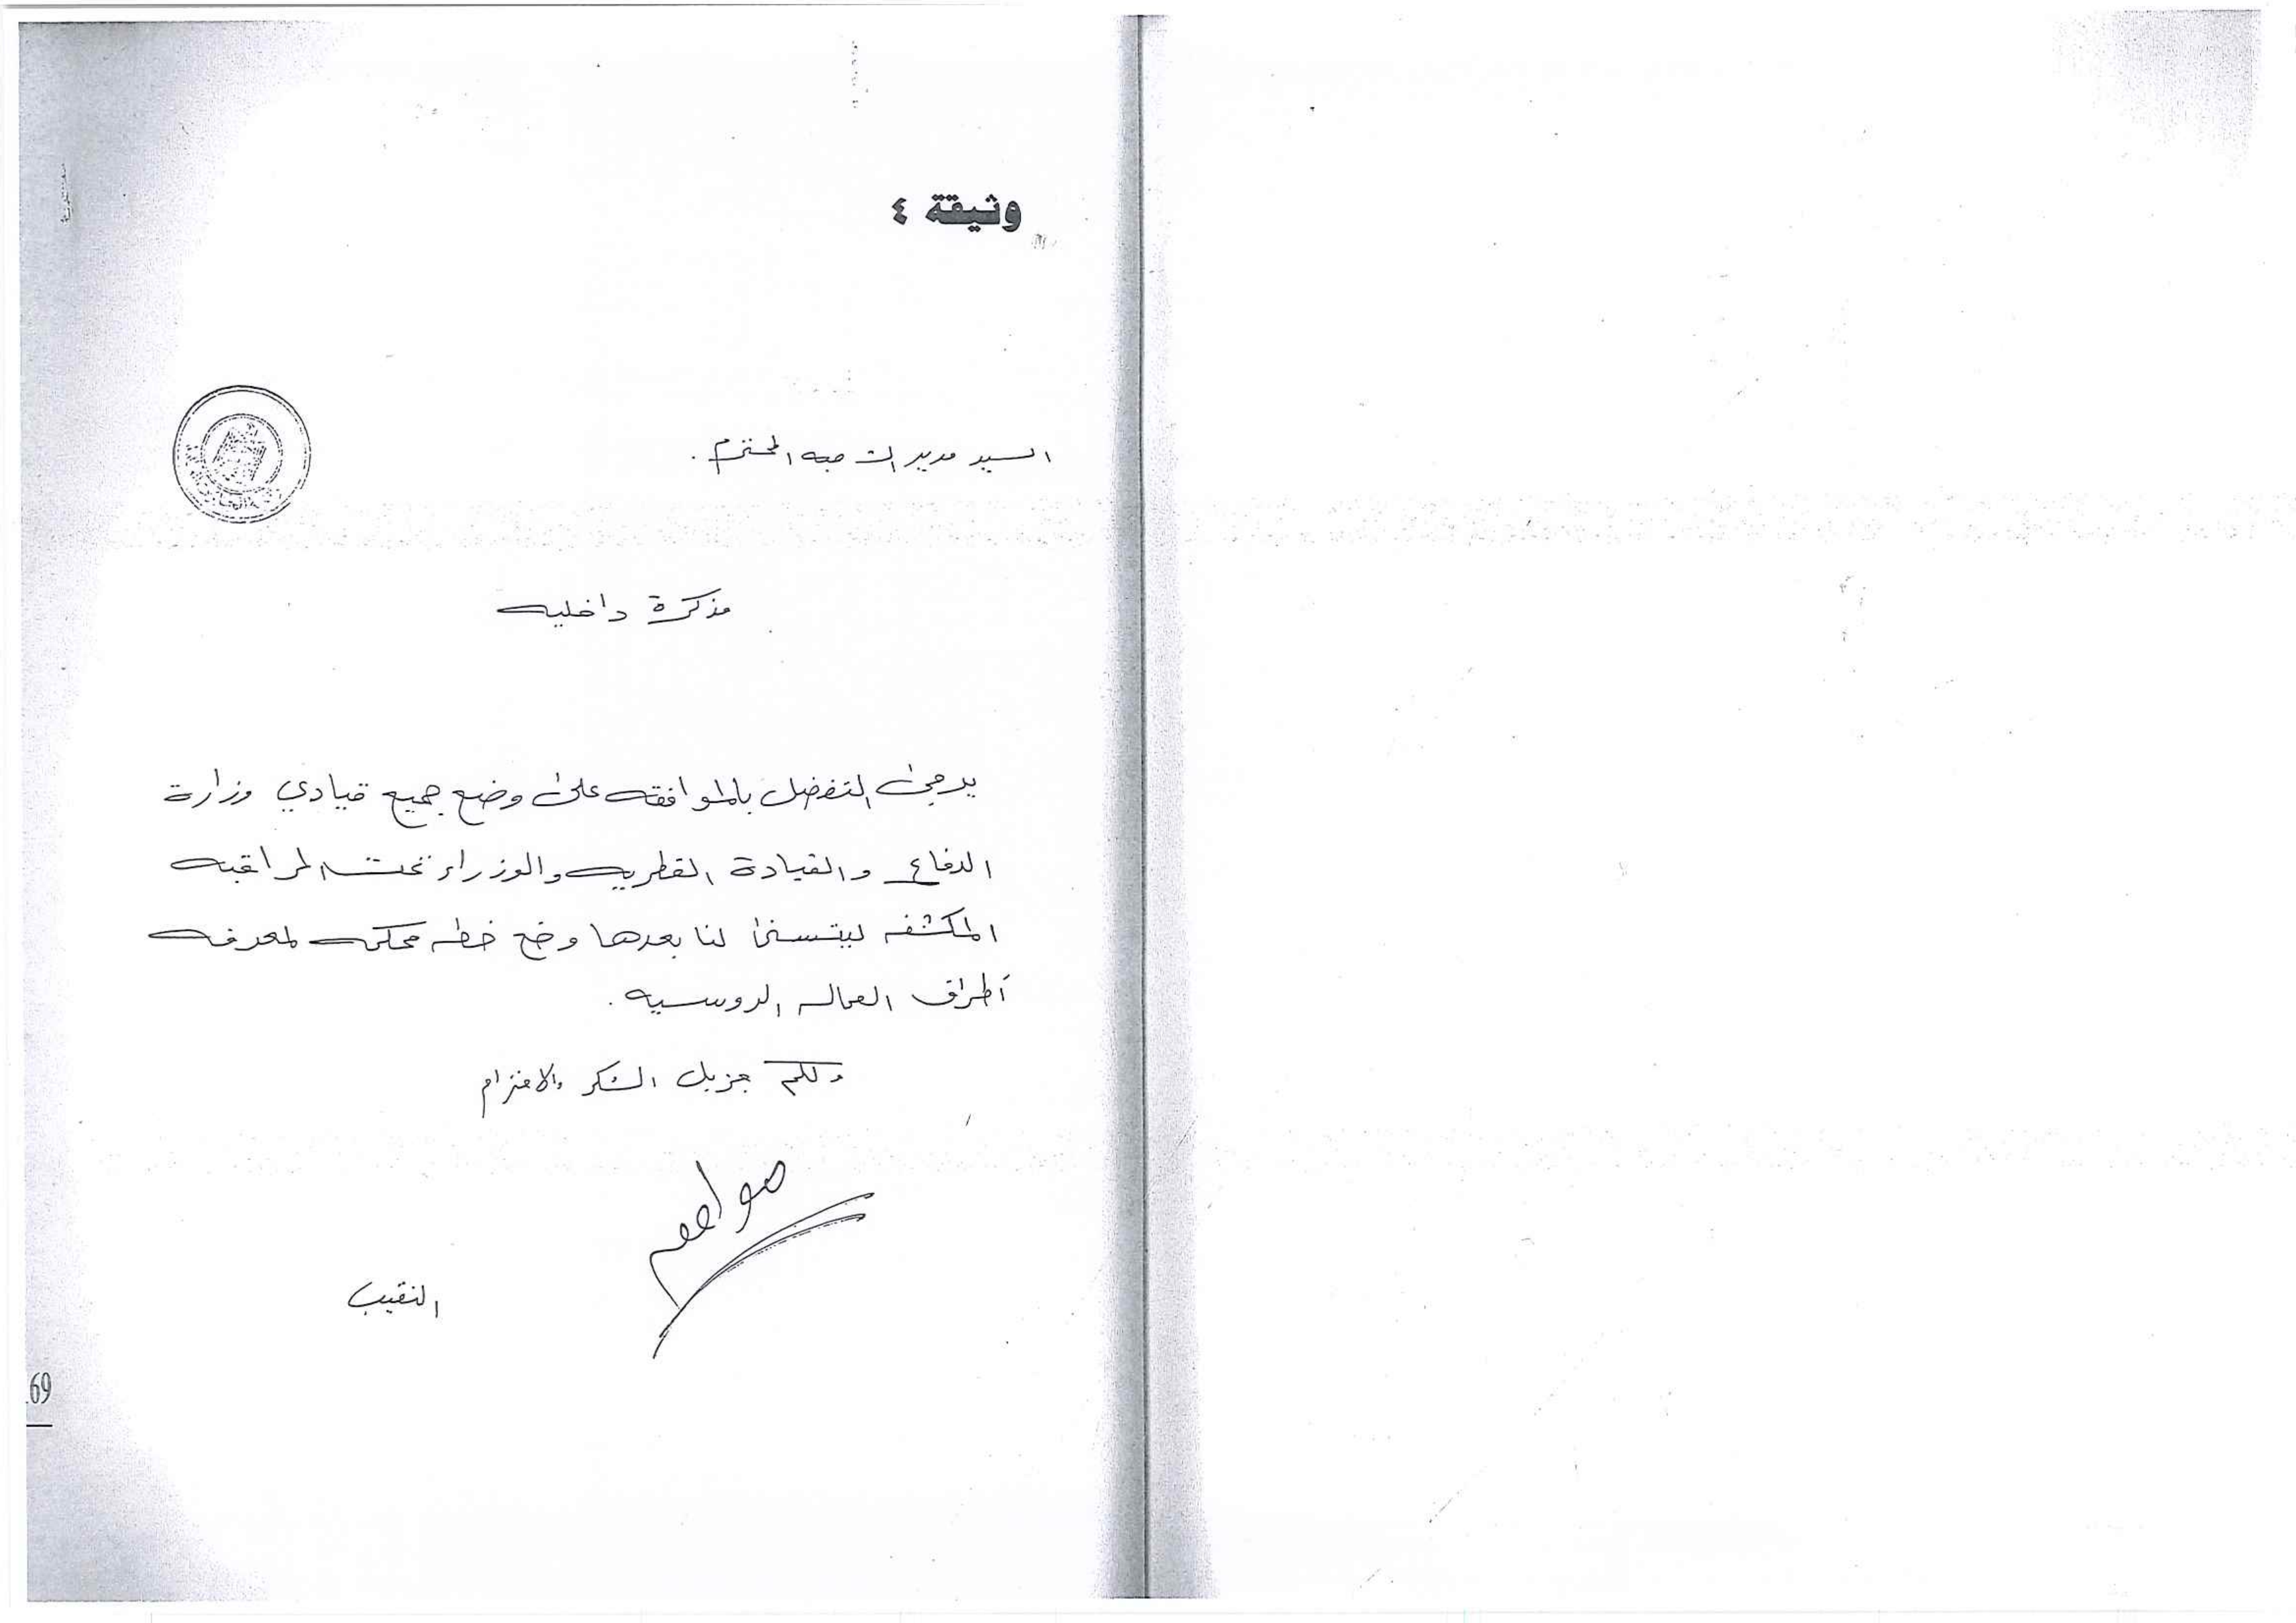 وثيقة ٤
السيد مدير الشعبه المحترم .
مذكرة داخليه
يرجى التفضل بالموافقه على وضع جميع قيادي وزارة
الدفاع والقيادة القطريه والوزراء تحت المراقبه
المكثفه ليتسنى لنا بعدها وضع خطه محكمه لمعرفه
أطراف العماله الروسيه .
ولكم جزيل الشكر والاحترام
النقيب
69